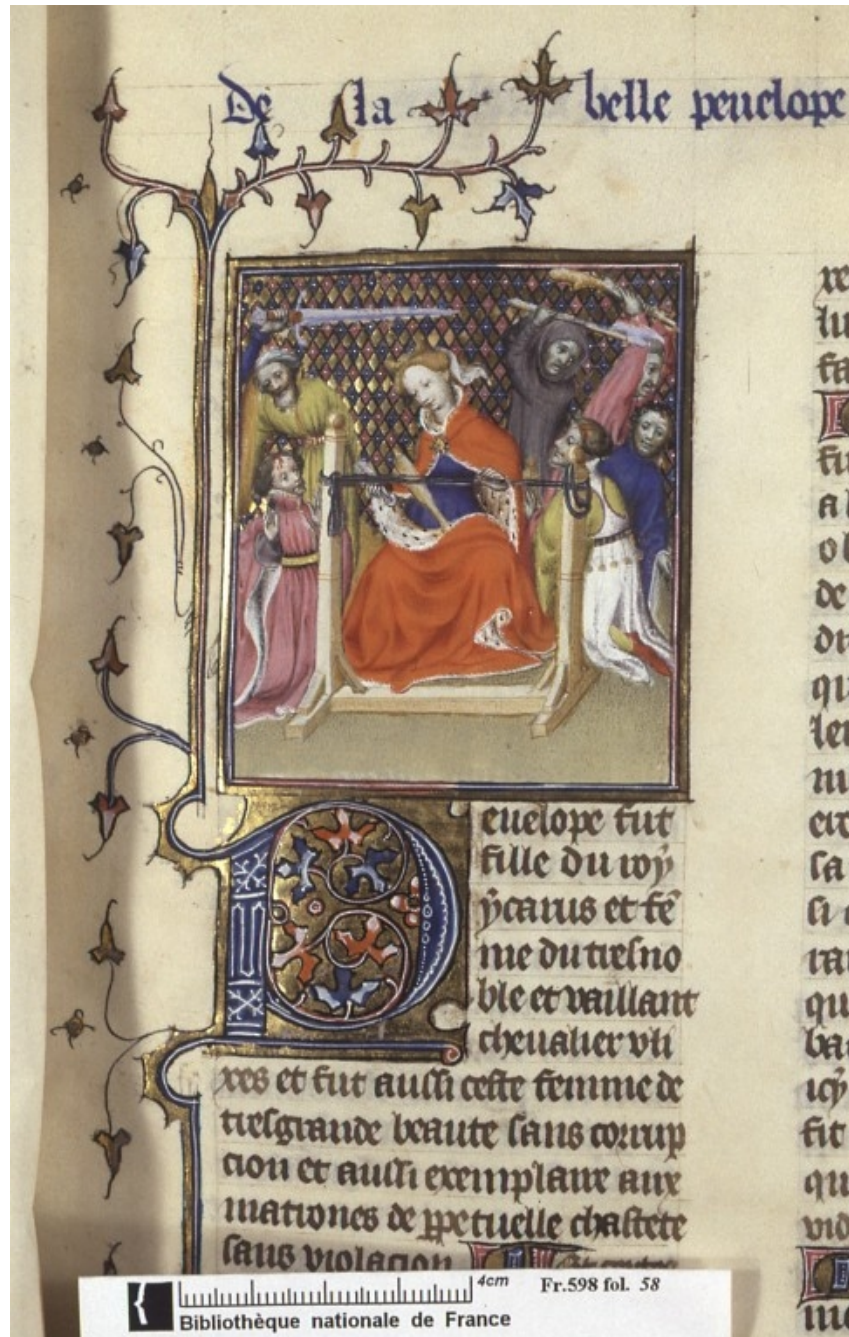 De la belle penelope
enelope fut
fille du roy
ycarus et fē
me du tresno
ble et vaillant
chevalier uli
xes et fut aussi ceste femme de
tresgrande beaute sans corrup
cion et aussi exemplaire aux
matrones de ꝑpetuelle chastete
sans violacion
4cm
Fr.598 fol. 58
Bibliothèque nationale de France